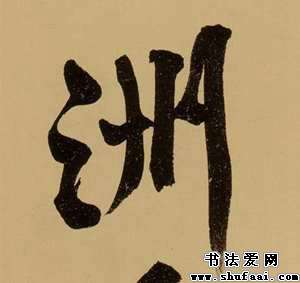 洲
书法爱网
www.shufaai.com